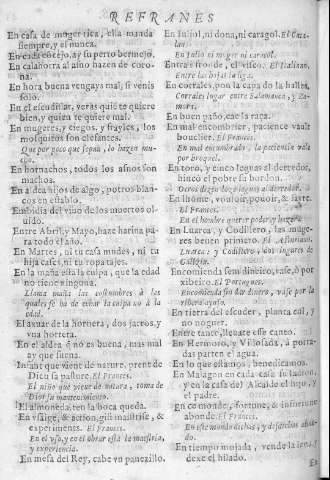 REFRANES
En casa de muger rica, ella manda
siempre, y el nunca.
En cada cortejo, ay su perro bermejo.
En calahorra al asno hazen de coro-
na.
En hora buena vengays mal, si venis
solo.
En el escudillar, veras quié te quiere
bien, y quien te quiere mal.
En mugeres, y ciegos, y frayles, los
mosquitos son elefantes.
Que por poco que sepan, lo hazen mu-
cho.
En hornachos, todos los asnos son
machos.
En aldea hijos de algo, potros blan-
cos en establo.
Embidia del viuo de los muertos ol-
uido.
Entre Abril, y Mayo, haze harina pa-
ra todo el año.
En Martes, ni tu casa mudes, ni tu
hija cases, ni tu ropa tajes.
En la maña esta la culpa, que la edad
no tiene ninguna.
Llama maña las costumbres à las
quales se ha de echar la culpa no à la
edad.
El axuar de la hornera, dos jarros, y
vna hortera.
En el aldea q̃ no es buena, mas mal
ay que suena.
Infant que vient de nature, prent de
Dieu sa pasture. El Frances.
El niño que viene de natura, toma de
Dios su mantenimiento.
El almoneda, ten la boca queda.
En vsaige, & façon, gist maistrise, &
experiment. El Frances.
En el vso, y en el obrar està la maestria,
y experiencia.
En mesa del Rey, cabe vn panezillo.
En Iuliol, ni dona, ni caragol. El Cata-
lan.
En Iulio ni muger ni caracol.
Entra frondi, el visco. El Italiano.
Entre las hojas la liga.
En corrales, pon la capa do la halles.
Corrales lugar entre Salamanca, y Za-
mora.
En buen paño, cae la raça.
En mal encombrier, pacience vault
bouclier. El Frances.
En mal encumbrado, la paciencia vale
por broquel.
En toro, y cinco leguas al derredor,
hinco el pobre su bordon.
Otros dizen doze leguas al derredor.
En lhome, vouloir, pouoir, & fayre.
El Frances.
En el hombre querer poder y hazer.
En Luarca, y Codillero, las muge-
res beuen primero. El Asturiano.
Luarca, y Codillero, dos lugares de
Encomienda sem dinheiro, vase, ò por
ribeiro. El Portugues.
Encomienda sin dinero, vase por la
ribera ayuso.
En tierra del escuder, planta col, y
no noguer.
Entre tanto, llegate esse canto.
En Hermoro, y Villosada, à porta-
das parten el agua.
En lo que estamos, benedicamos.
En Malagon en cada casa ay ladron,
y en la casa del Alcalde el hijo, y
el padre.
En ce monde, fortune, & infortune
abonde. El Frances.
En este mundo dichas, y desdichas abun-
dan.
En tiempo mojado, vende la lena
dexe el hilado.
En